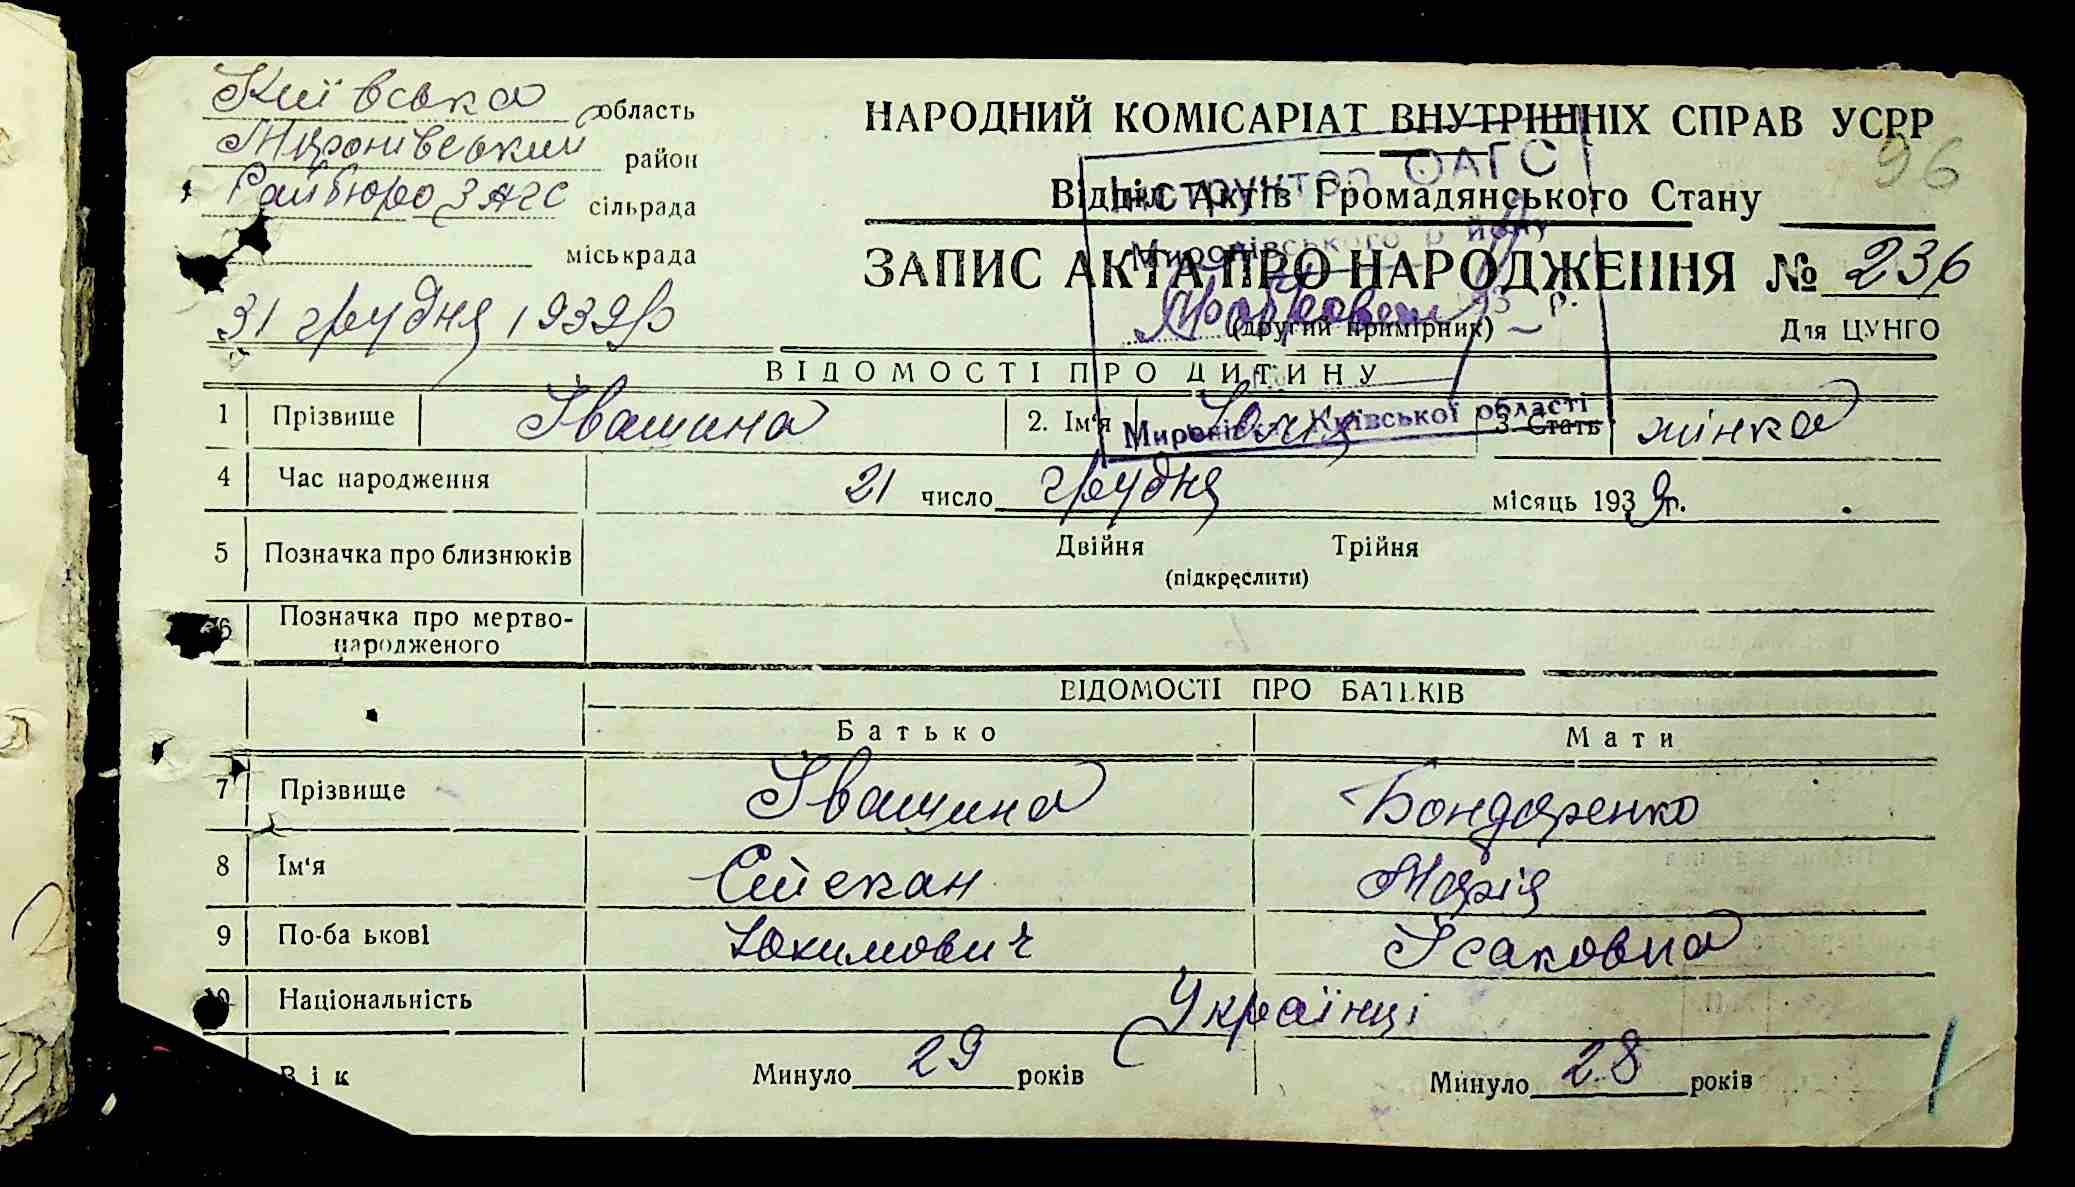 Київська область
Миронівський район
Райбюро ЗАГС сільрада
міськрада
31 грудня 1939 р
НАРОДНИЙ КОМІСАРІАТ ВНУТРІШНІХ СПРАВ УСРР
96
Відділ Актів Громадянського Стану
ЗАПИС АКТА ПРО НАРОДЖЕННЯ № 236
(другий примірник)
Для ЦУНГО
Інструктор ОАГС
Миронівського району
193 р.
Київської області
ВІДОМОСТІ ПРО ДИТИНУ
1 Прізвище Іващина 2. Ім'я 3. Стать жінка
4 Час народження 21 число грудня місяць 1939 р.
5 Позначка про близнюків Двійня Трійня
(підкреслити)
6 Позначка про мертво-
народженого
ВІДОМОСТІ ПРО БАТЬКІВ
Батько Мати
7 Прізвище Іващина Бондаренко
8 Ім'я Степан Марія
9 По-ба ькові Юхимович Ісаковна
10 Національність Українці
Вік Минуло 29 років Минуло 28 років